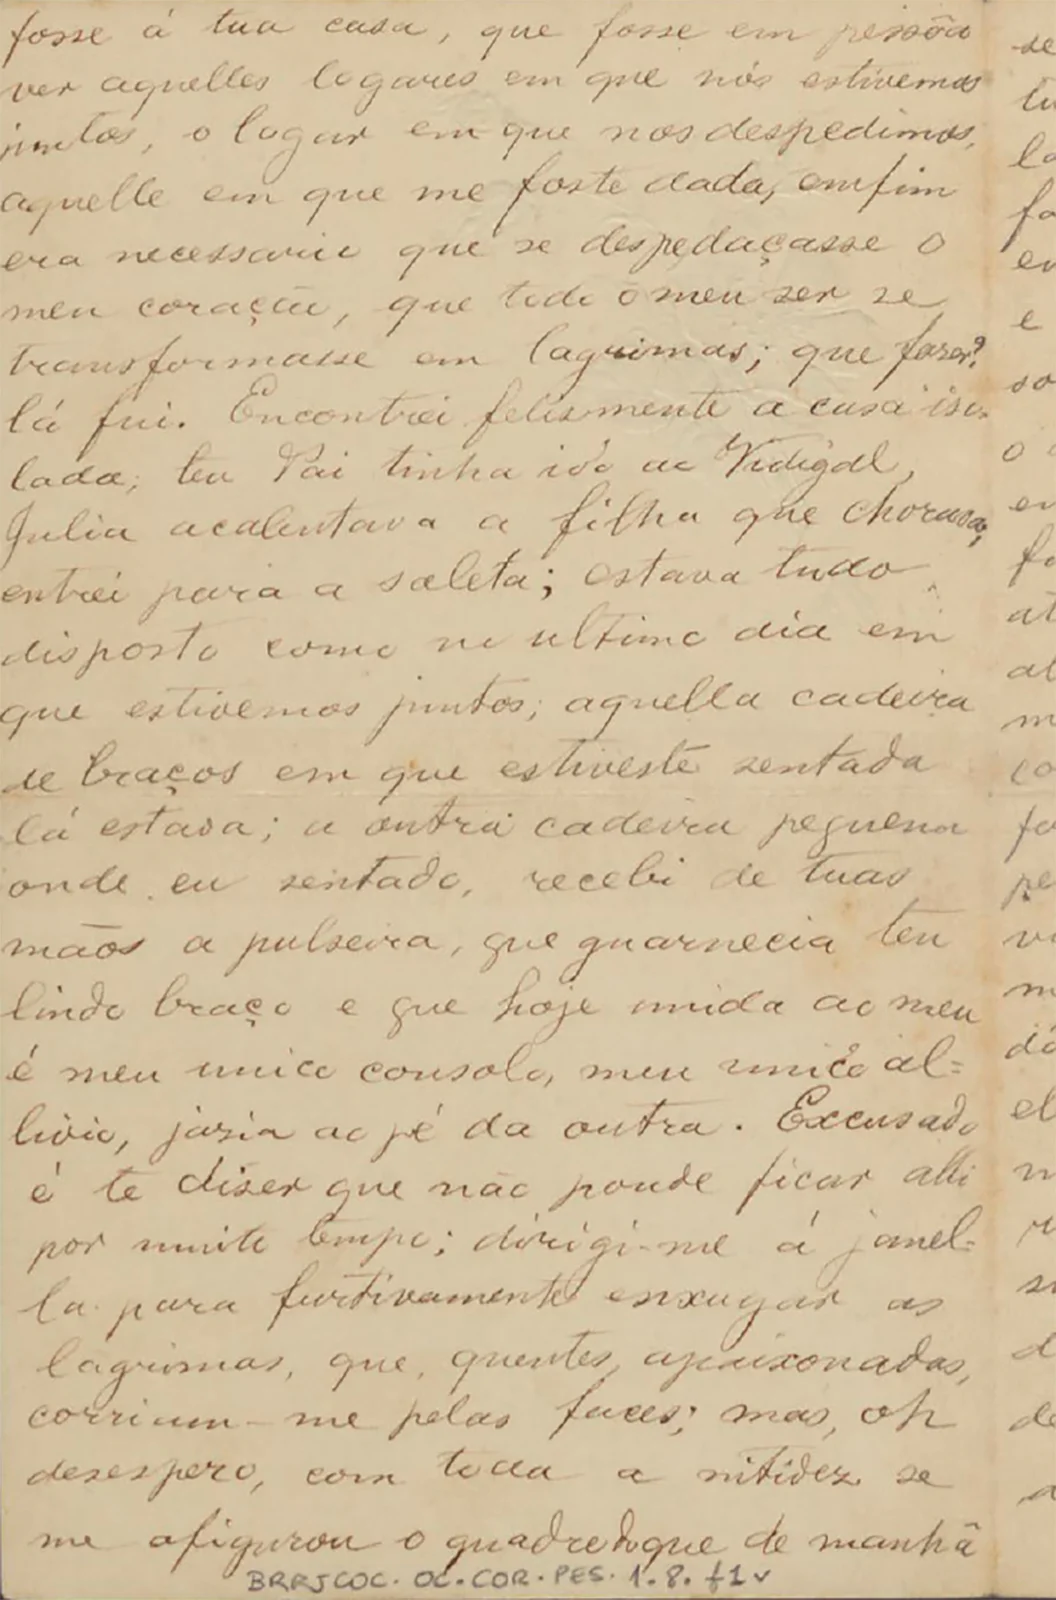 fosse á tua casa, que fosse em pessôa
ver aquelles logares em que nós estivemos
juntos, o logar em que nos despedimos,
aquelle em que me foste dada, emfim
era necessario que se despedaçasse o
meu coração, que todo o meu ser se
transformasse em lagrimas; que fazer?
lá fui. Encontrei felizmente a casa iso-
lada; teu Pai tinha ido ao Vidigal,
Julia acalentava a filha que chorava,
entrei para a saleta; estava tudo
disposto como no ultimo dia em
que estivemos juntos; aquella cadeira
de braços em que estiveste sentada
lá estava; a outra cadeira pequena
onde eu sentado, recebi de tuas
mãos a pulseira, que guarnecia teu
lindo braço e que hoje unida ao meu
é meu unico consolo, meu unico al=
livio, jazia ao pé da outra. Excusado
é te dizer que não poude ficar alli
por muito tempo; dirigi-me á janel=
la para furtivamente enxugar as
lagrimas, que, quentes, apaixonadas,
corriam-me pelas faces; mas, oh
desespero, com toda a nitidez se
me afigurou o quadro do que de manhã
BRRJCOC. OC. COR. PES. 1. 8. f1v